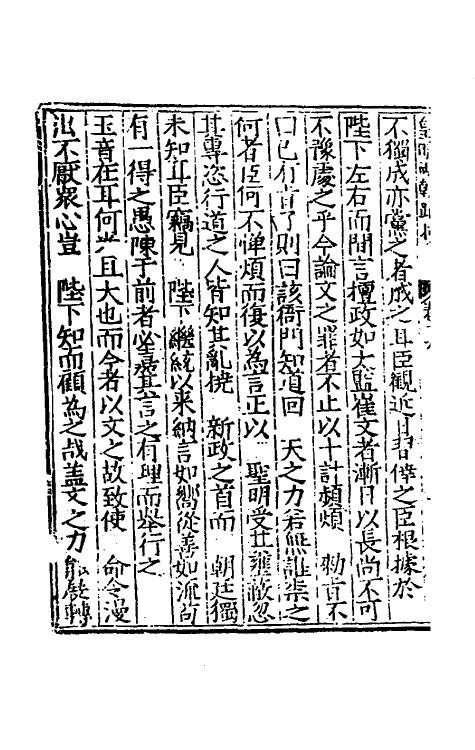 不獨成亦黨之者成之耳臣觀近日習倖之臣根據於
陛下左右而間言檀政如太監崔文者漸日以長尚不可
不豫慮之乎今論文之罪者不止以十計頻煩　勑旨不
曰已有旨了則曰該衙門知道回　天之力若無誰柒之
何者臣何不憚煩而復以為言正以　聖明受其壅蔽忽
其專恣行道之人皆知其亂撓　新政之首而　朝廷獨
未知耳臣竊見　陛下繼統以来納言如嚮從善如流苟
有一得之愚陳于前者必喜甚其言之有理而舉行之
玉音在耳何光且大也而今者以文之故致使　命令漫
出不厭衆心豈　陛下知而顧為之哉盖文之力能旋轉